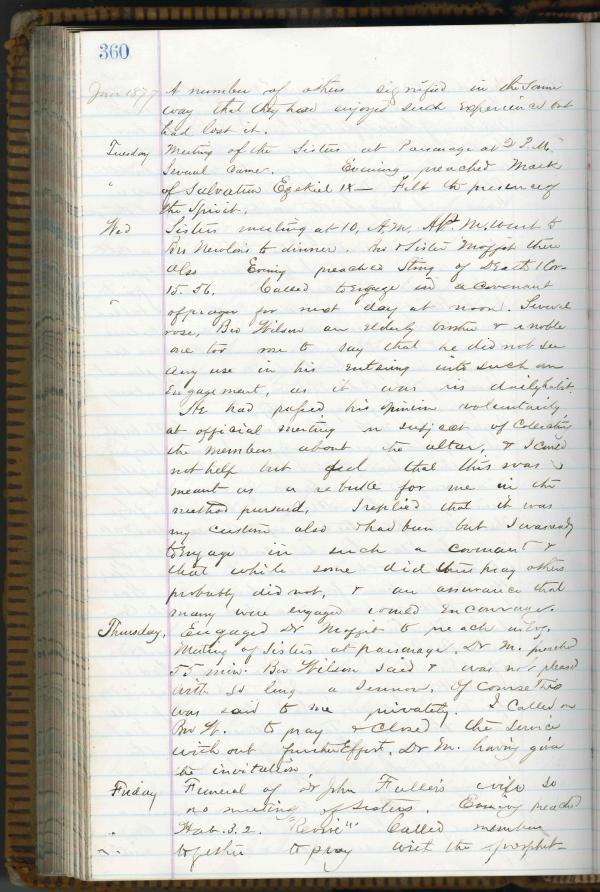 360
Jan 1877 A number of others signified in the same
way that they had enjoyed such experience but
had lost it.
Tuesday Meeting of the Sisters at Parsonage at 2 P.M.
Several came. Evening preached Mark
" of Salvation Ezekiel IX— Felt the presence of
the Spirit.
Wed Sisters meeting at 10, A.M. Aft. M. went to
Bro Newlons to dinner. Dr & Sister Moffit there
also Evening preached Sting of Death 1 Cor-
15-56. Called to engage in a covenant
" of prayer for next day at noon. Several
rose, Bro Wilson an elderly brother & a noble
one too rose to say that he did not see
any use in his entering into such an
engagement, as it was his daily habit.
He had passed his opinion voluntarily,
at official meeting on subject of collecting
the members about the altar, & I could
not help but feel that this was
meant as a rebuke for me in the
method pursued, I replied that it was
my custom also & had been but I was ready
to engage in such a covenant &
that while some did thus pray others
probably did not, & an assurance that
many were engaged would encourage.
Thursday, Engaged Dr Moffit to preach
Meeting of Sisters at parsonage. Dr M. preached
55 min. Bro Wilson said & was not pleased
with so long a sermon. Of course this
was said to me privately. I called on
Bro W. to pray & closed the service
without further effort, Dr M. having given
the invitation
Friday Funeral of Dr John Fuller's wife so
no meeting of Sisters. Evening preached
" Hab. 3.2. "Revive" Called members
together to pray with the prophet-